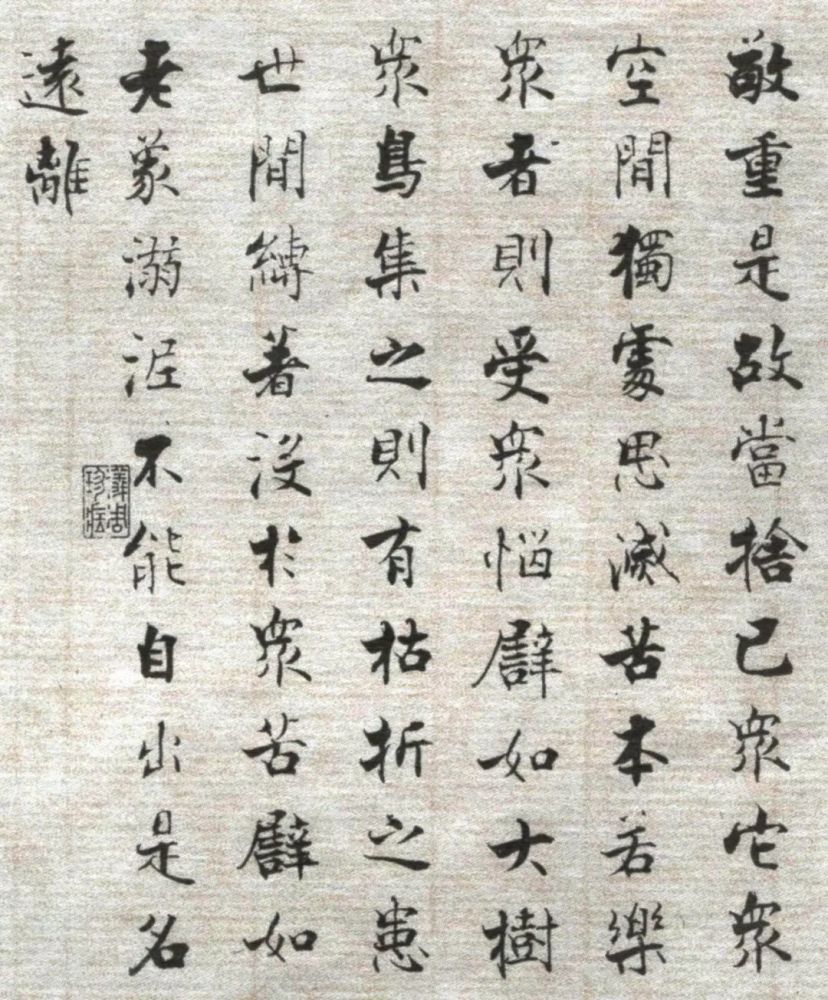 敬重是故當捨已衆它衆
空間獨處思滅苦本若樂
衆者則受衆惱譬如大樹
衆鳥集之則有枯折之患
世間縛著沒於衆苦譬如
老象溺泥不能自出是名
遠離